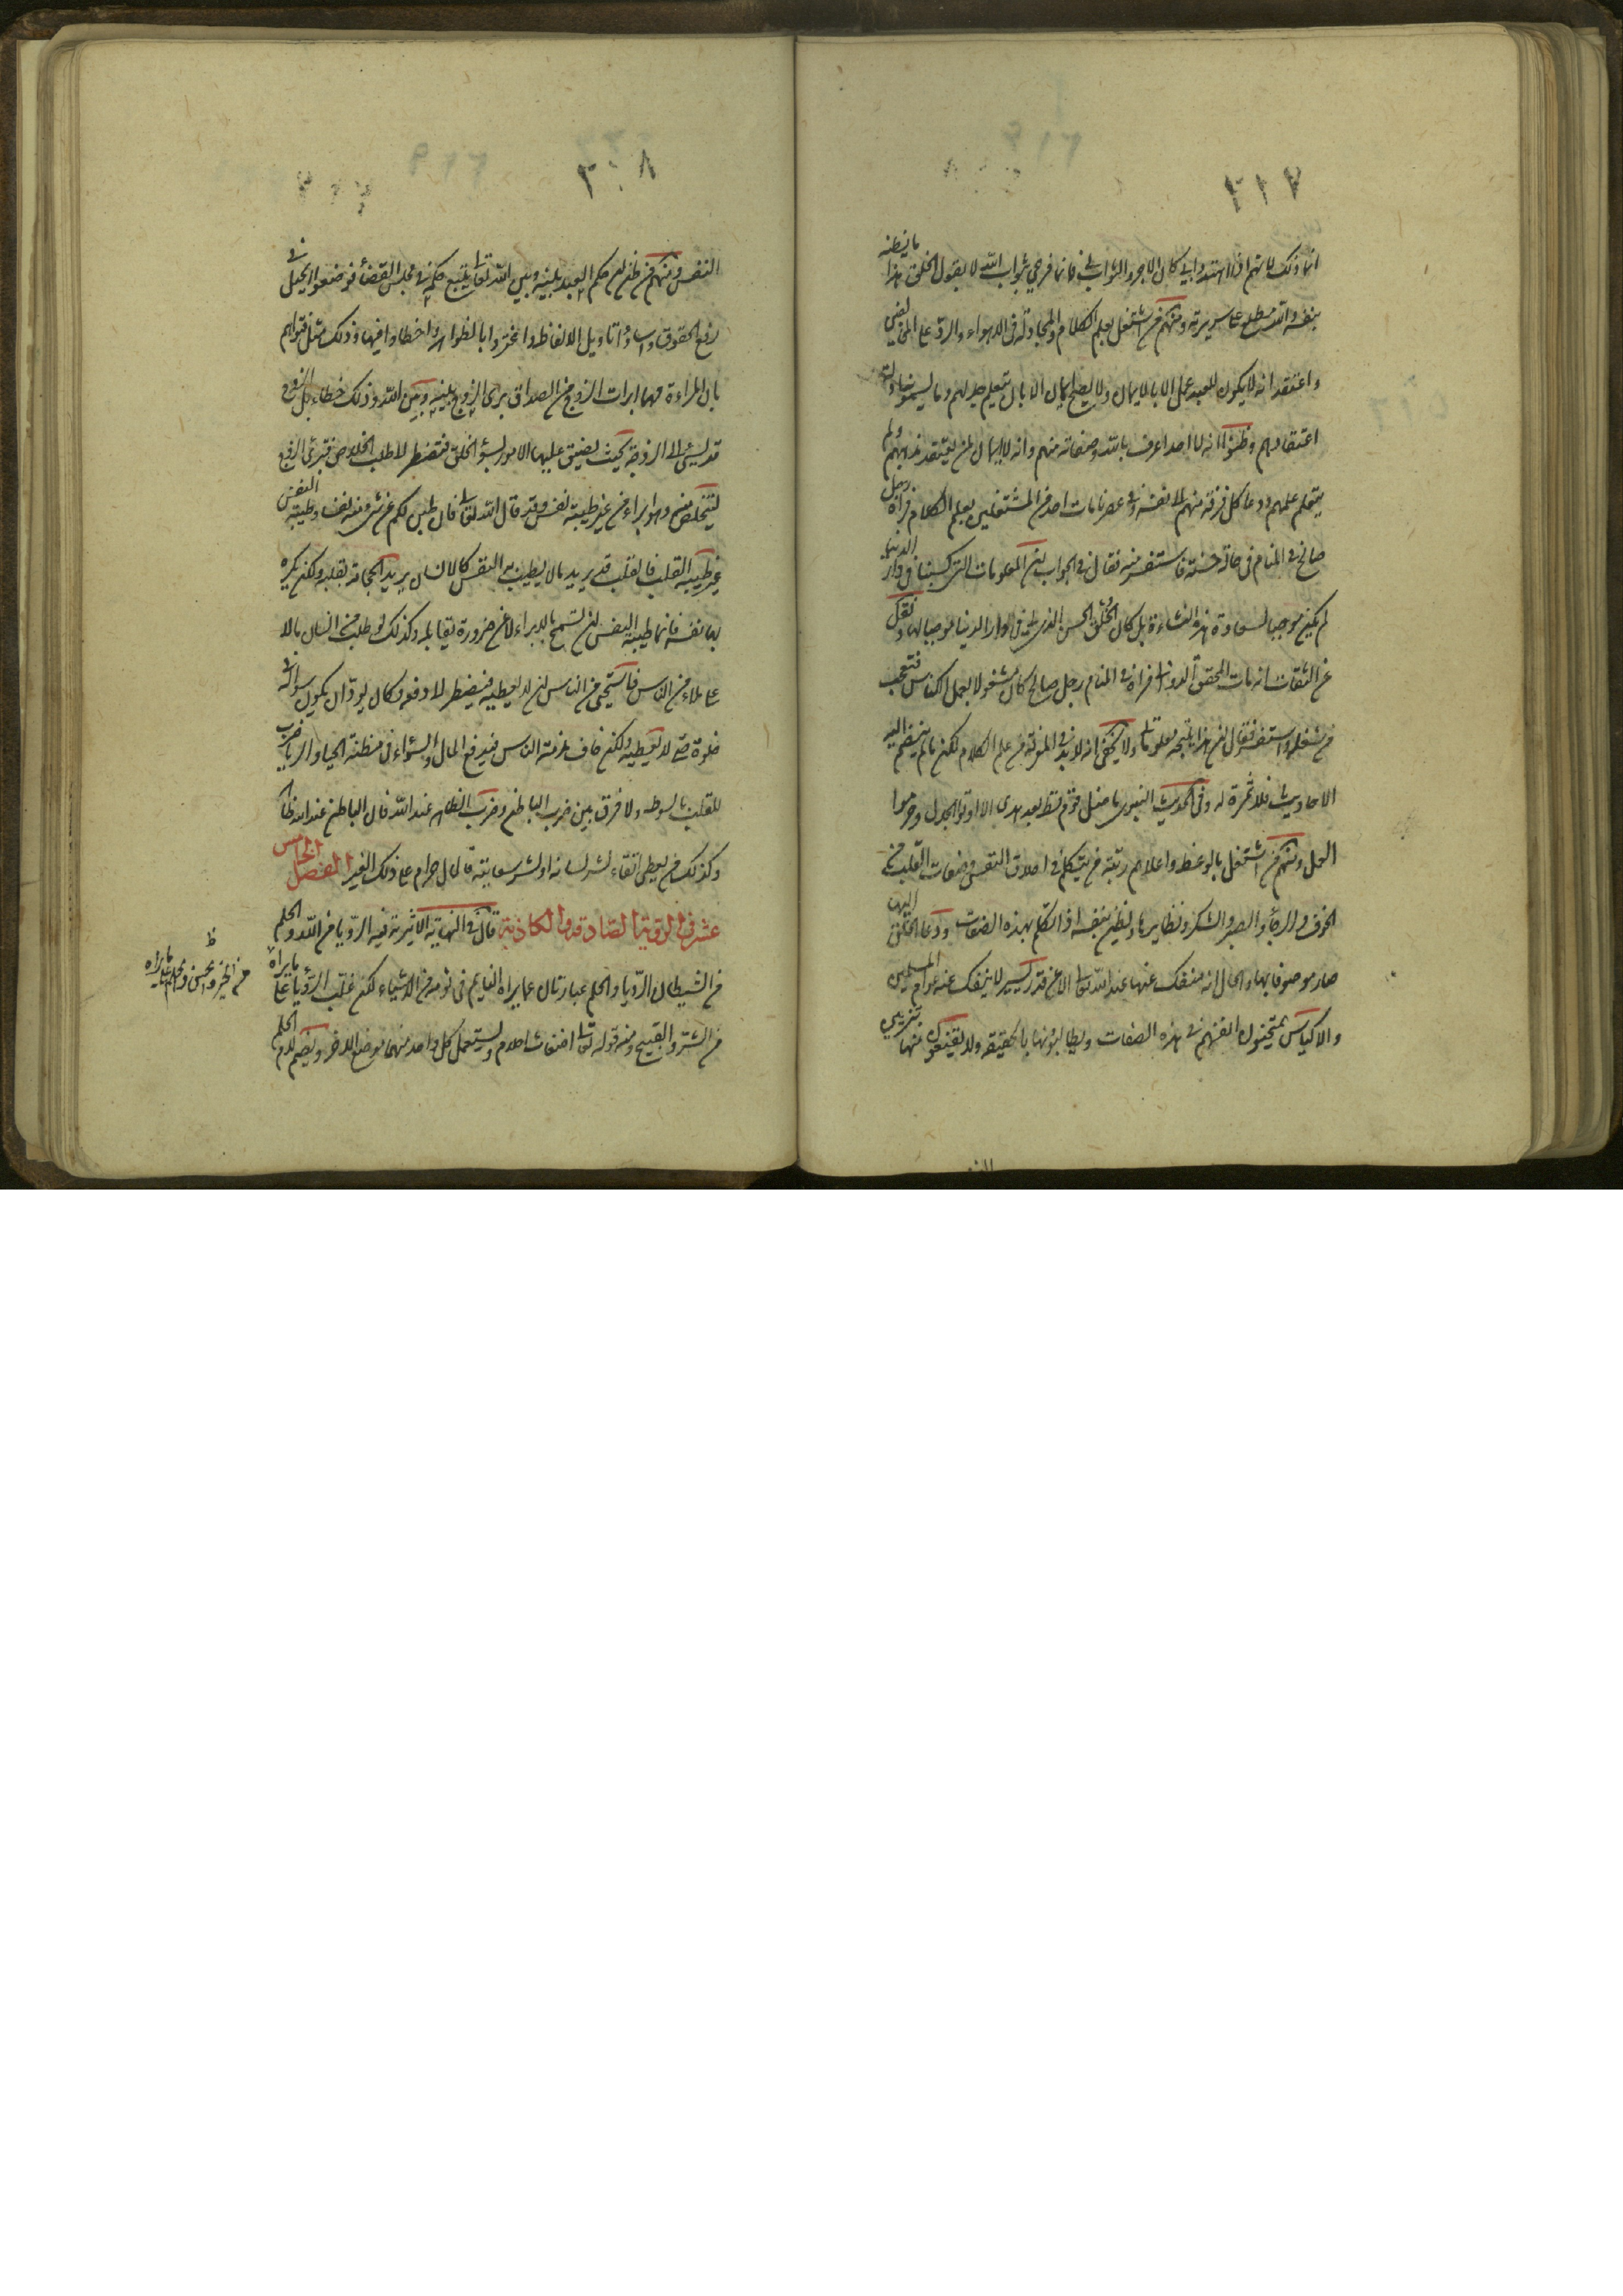 ٢١٧
انما ذلك لانهم اذا اهتدوا بي كان الاجر والثواب لي فانما فرحي بثواب الله لا بقبول الخلق هذا ما يظنه
بنفسه والله مطلع على سريرته ومنهم من اشتغل بعلم الكلام والمجادلة في الاهواء والرد على المخالفين
واعتقد انه لا يكون للعبد عمل الا بالايمان ولا يصح ايمان الا بان يتعلم جدلهم وما يسمونه ادلة
اعتقاداتهم وظنوا انه لا احد اعرف بالله وصفاته منهم وانه لا ايمان لمن لم يعتقد مذهبهم ولم
يتعلم علمهم ودعا كل فرقة منهم الى نفسه وفي عصرنا مات احد من المشتغلين بعلم الكلام فرآه رجل
صالح في المنام في حالة حسنة فاستفسر منه فقال في الجواب ان المعلومات التي كسبتها في دار الدنيا
لم يكن موجبا لسعادة هذه النشاءة بل كان الخلق الحسن الذي لي في دار الدنيا موجبا لها ونقل
عن الثقات انه مات المحقق الدواني فرآه في المنام رجل صالح كان مشغولا بعمل الكناس فتعجب
من شغله واستفسره فقال ان هذا نتيجة معلوماتي ولا يخفى انه لا بد في المعرفة من علم الكلام لكن ما لم ينضم اليه
الاحاديث فلا ثمرة له وفي الحديث النبوي ما ضل قوم قط بعد هدى الا اوتوا الجدل وحرموا
العمل ومنهم من اشتغل بالوعظ واعلاهم رتبة من يتكلم في اخلاق النفس وصفات القلب من
الخوف والرجاء والصبر والشكر ونظايرها ويظن بنفسه اذا تكلم بهذه الصفات ودعا الخلق اليها
صار موصوفا بها والحال انه منفك عنها عند الله تعالى الا عن قدر يسير لا ينفك عنه عوام المسلمين
والاكياس يمتحنون انفسهم في هذه الصفات ويطالبونها بالحقيقة ولا يقنعون منها بتزيين
٢١٨
النفس ومنهم من ظن ان حكم العبد بينه وبين الله تعالى يتبع حكمه في مجلس القضاء فوضعوا الحيل في
رفع الحقوق واساؤا تاويل الالفاظ واغتروا بالظواهر واخطاوا فيها وذلك مثل فتواهم
بان المراءة مهما ابرات الزوج من الصداق برى الزوج بينه وبين الله وذلك خطاء بل الزوج
قد يسئ الى الزوجة بحيث يضيق عليها الامور بسوء الخلق فتضطر الى طلب الخلاص فتبرئ الزوج
لتتخلص منه وهو ابراء من غير طيبة نفس وقد قال الله تعالى فان طبن لكم عن شئ منه نفسا وطيبة النفس
غير طيبة القلب فالقلب قد يريد ما لا يطيب به النفس كالانسان يريد الحجامة بقلبه ولكن يكره
بها نفسه فانما طيبة النفس ان تسمح بالابراء لا عن ضرورة تقابله وكذلك لو طلب من انسان مالا
على ملاء من الناس فاستحى من الناس ان لا يعطيه فيضطر الى دفعه وكان يود ان يكون سواله في
خلوة حتى لا يعطيه ولكن خاف مذمة الناس فيدفع المال والسؤال في مظنة الحيا والريا ضرب
للقلب بالسوط ولا فرق بين ضرب الباطن وضرب الظاهر عند الله فان الباطن عند الله ظاهر
وكذلك من يعطي اتقاء لشر لسانه او لشر سعايته فالمال حرام على ذلك الغير الفصل الخامس
عشر في الرؤيا الصادقة والكاذبة قال في النهاية الاثيرية فيه الرؤيا من الله والحلم
من الشيطان الرؤيا والحلم عبارتان عما يراه النايم في نومه من الاشياء لكن غلبت الرؤيا على ما يراه
من الشر والقبيح ومنه قوله تعالى اضغاث احلام ويستعمل كل واحد منهما موضع الاخر وتضم لام الحلم
ظ
من الخير والحسن والحلم على ما يراه